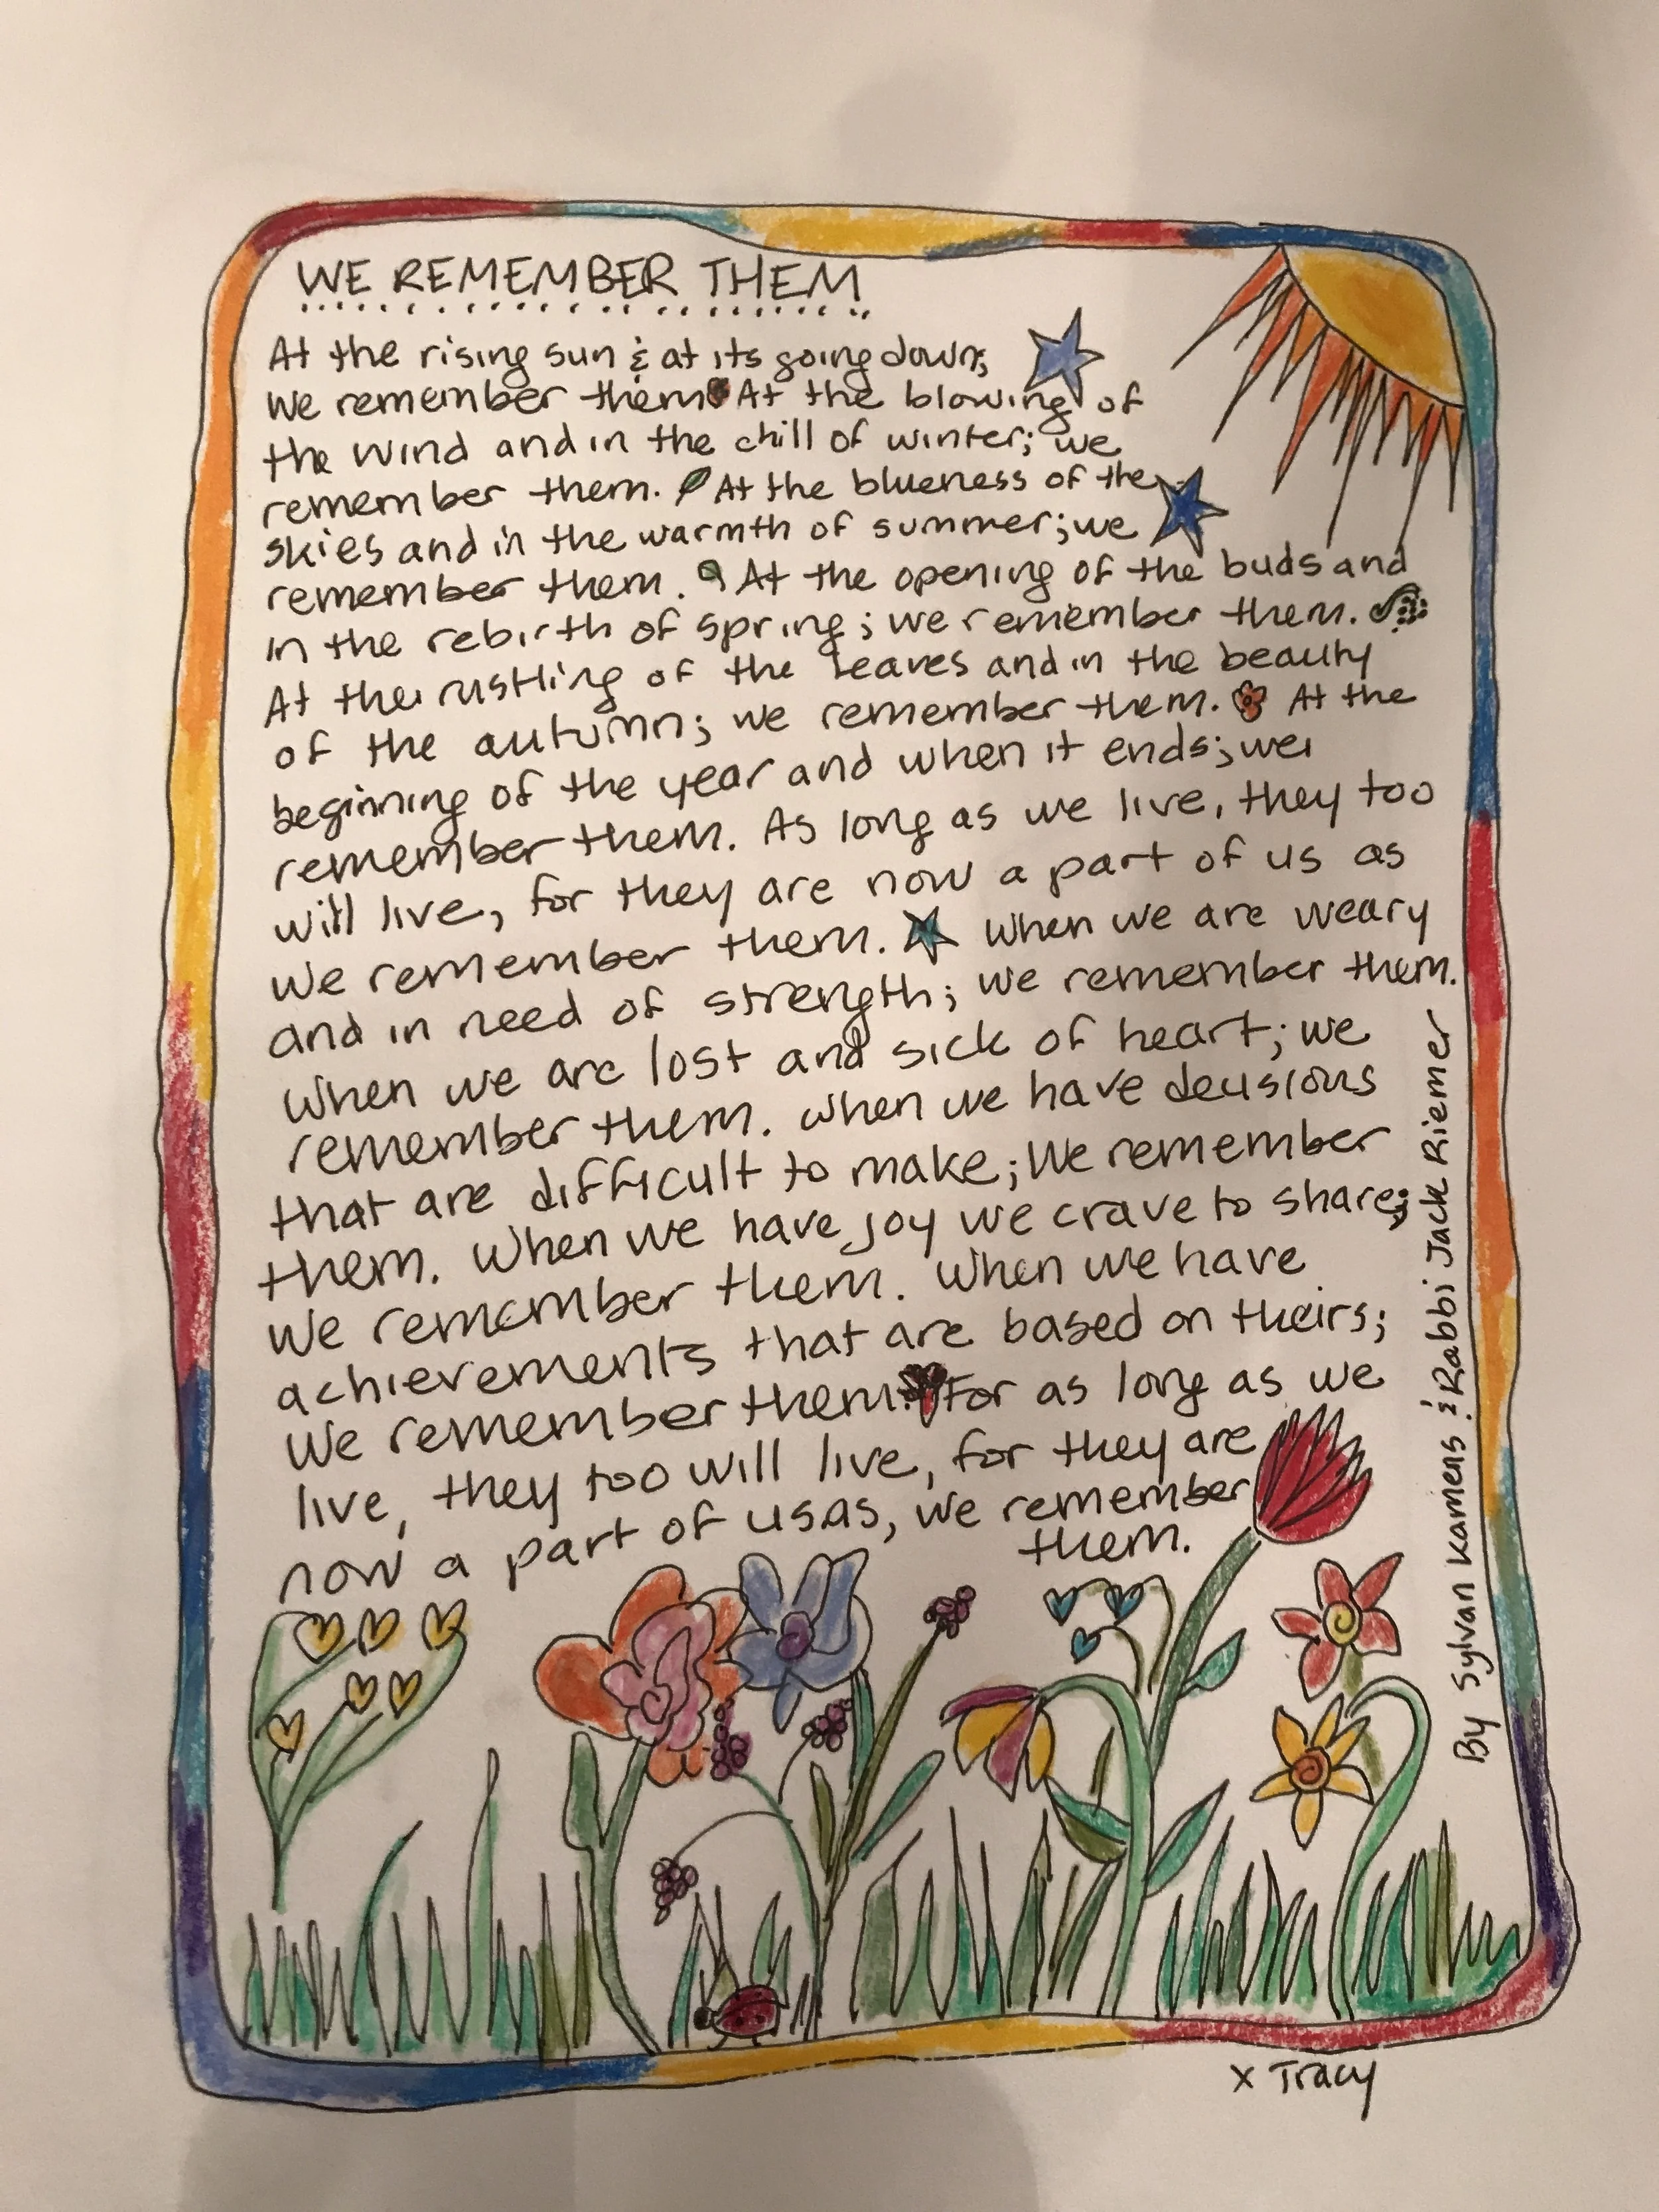 WE REMEMBER THEM
At the rising sun & at its going down;
we remember them. At the blowing of
the wind and in the chill of winter; we
remember them. At the blueness of the
skies and in the warmth of summer; we
remember them. At the opening of the buds and
in the rebirth of spring; we remember them.
At the rustling of the leaves and in the beauty
of the autumn; we remember them. At the
beginning of the year and when it ends; we
remember them. As long as we live, they too
will live, for they are now a part of us as
we remember them. When we are weary
and in need of strength; we remember them.
When we are lost and sick of heart; we
remember them. When we have decisions
that are difficult to make; We remember
them. When we have joy we crave to share;
We remember them. When we have
achievements that are based on theirs;
We remember them. For as long as we
live, they too will live, for they are
now a part of us as, we remember
them.
By Sylvan Kamens & Rabbi Jack Riemer
x Tracy